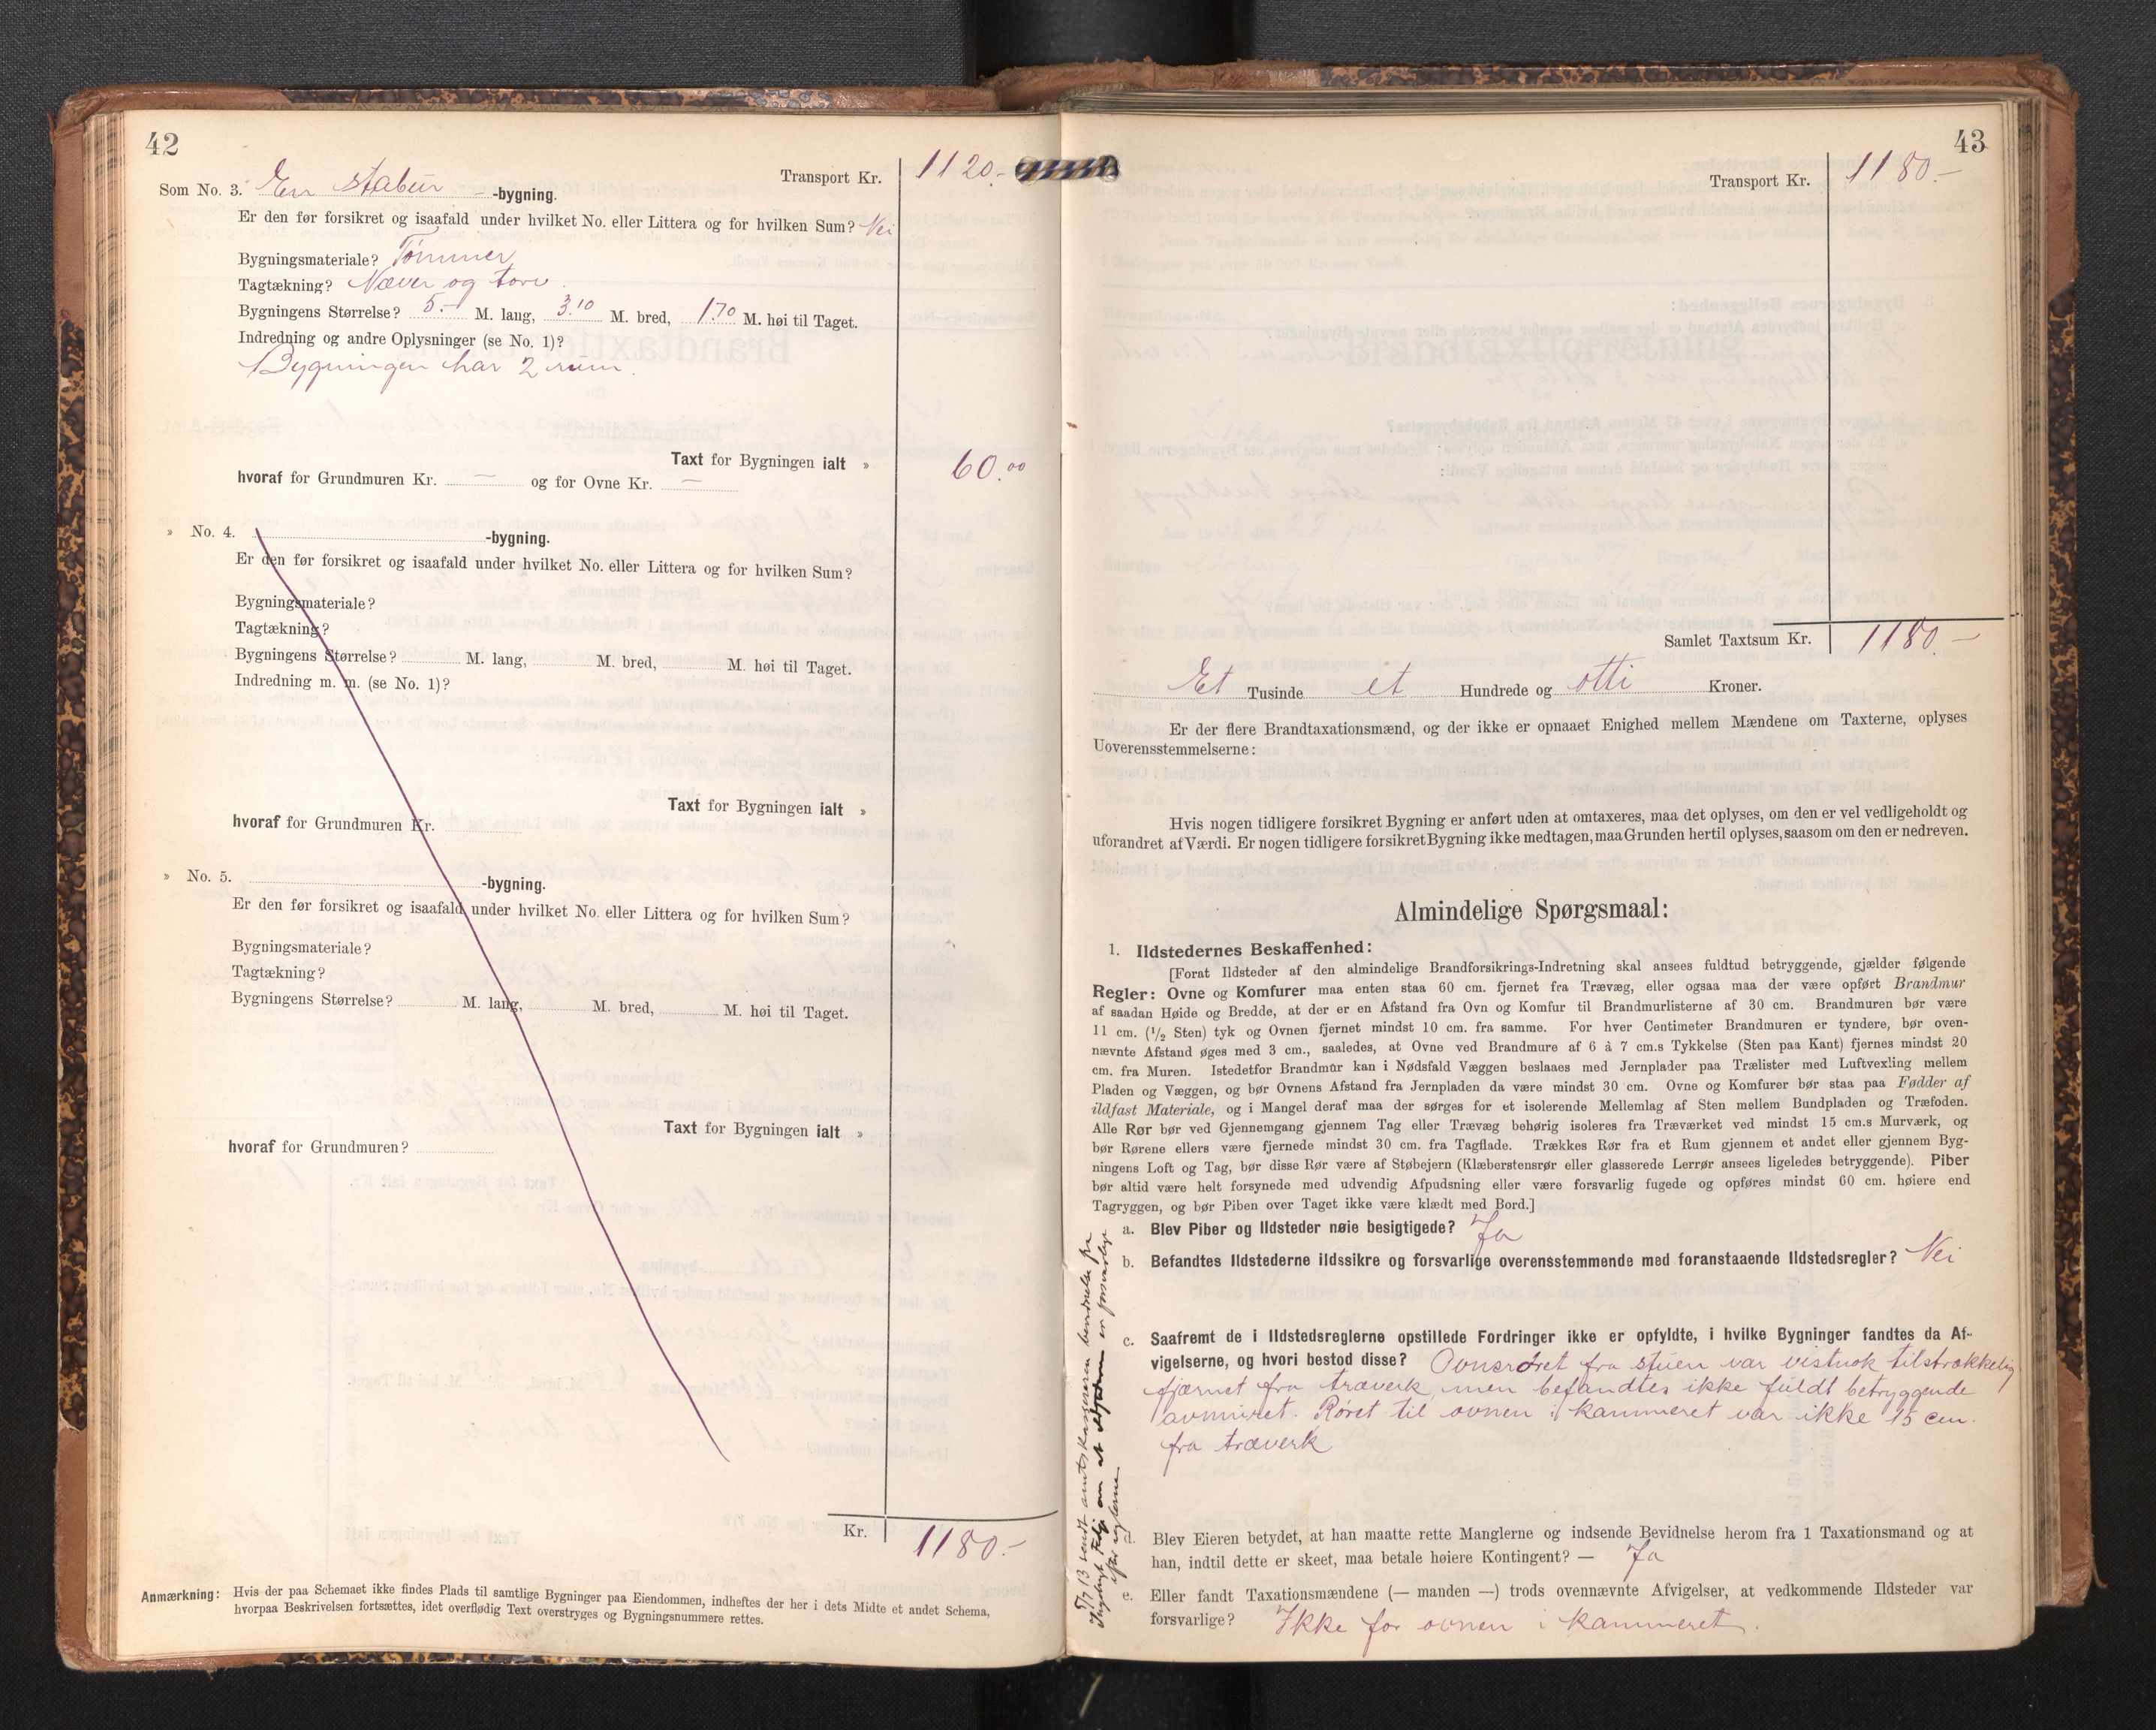 42
Transport Kr. 1120.-
Som No. 3. En stabur -bygning.
Er den før forsikret og isaafald under hvilket No. eller Littera og for hvilken Sum? Nei
Bygningsmateriale? Tømmer
Tagtækning? Næver og torv.
Bygningens Størrelse? 5.- M. lang, 3.10 M. bred, 1.70 M. høi til Taget.
Indredning og andre Oplysninger (se No. 1)?
Bygningen har 2 rum.
Taxt for Bygningen ialt » 60.00
hvoraf for Grundmuren Kr. — og for Ovne Kr. —
» No. 4. -bygning.
Er den før forsikret og isaafald under hvilket No. eller Littera og for hvilken Sum?
Bygningsmateriale?
Tagtækning?
Bygningens Størrelse? M. lang, M. bred, M. høi til Taget.
Indredning m. m. (se No. 1)?
Taxt for Bygningen ialt »
hvoraf for Grundmuren Kr.
» No. 5. -bygning.
Er den før forsikret og isaafald under hvilket No. eller Littera og for hvilken Sum?
Bygningsmateriale?
Tagtækning?
Bygningens Størrelse? M. lang, M. bred, M. høi til Taget.
Taxt for Bygningen ialt »
hvoraf for Grundmuren?
Kr. 1180.-
Anmærkning: Hvis der paa Schemaet ikke findes Plads til samtlige Bygninger paa Eiendommen, indheftes der her i dets Midte et andet Schema,
hvorpaa Beskrivelsen fortsættes, idet overflødig Text overstryges og Bygningsnummere rettes.
43
Transport Kr. 1180.-
Samlet Taxtsum Kr. 1180.-
Et Tusinde et Hundrede og otti Kroner.
Er der flere Brandtaxationsmænd, og der ikke er opnaaet Enighed mellem Mændene om Taxterne, oplyses
Uoverensstemmelserne:
Hvis nogen tidligere forsikret Bygning er anført uden at omtaxeres, maa det oplyses, om den er vel vedligeholdt og
uforandret af Værdi. Er nogen tidligere forsikret Bygning ikke medtagen, maa Grunden hertil oplyses, saasom om den er nedreven.
Almindelige Spørgsmaal:
1. Ildstedernes Beskaffenhed:
[Forat Ildsteder af den almindelige Brandforsikrings-Indretning skal ansees fuldtud betryggende, gjælder følgende
Regler: Ovne og Komfurer maa enten staa 60 cm. fjernet fra Trævæg, eller ogsaa maa der være opført Brandmur
af saadan Høide og Bredde, at der er en Afstand fra Ovn og Komfur til Brandmurlisterne af 30 cm. Brandmuren bør være
11 cm. (1/2 Sten) tyk og Ovnen fjernet mindst 10 cm. fra samme. For hver Centimeter Brandmuren er tyndere, bør oven-
nævnte Afstand øges med 3 cm., saaledes, at Ovne ved Brandmure af 6 à 7 cm.s Tykkelse (Sten paa Kant) fjernes mindst 20
cm. fra Muren. Istedetfor Brandmur kan i Nødsfald Væggen beslaaes med Jernplader paa Trælister med Luftvexling mellem
Pladen og Væggen, og bør Ovnens Afstand fra Jernpladen da være mindst 30 cm. Ovne og Komfurer bør staa paa Fødder af
ildfast Materiale, og i Mangel deraf maa der sørges for et isolerende Mellemlag af Sten mellem Bundpladen og Træfoden.
Alle Rør bør ved Gjennemgang gjennem Tag eller Trævæg behørig isoleres fra Træværket ved mindst 15 cm.s Murværk, og
bør Rørene ellers være fjernede mindst 30 cm. fra Tagflade. Trækkes Rør fra et Rum gjennem et andet eller gjennem Byg-
ningens Loft og Tag, bør disse Rør være af Støbejern (Klæberstensrør eller glasserede Lerrør ansees ligeledes betryggende). Piber
bør altid være helt forsynede med udvendig Afpudsning eller være forsvarlig fugede og opføres mindst 60 cm. høiere end
Tagryggen, og bør Piben over Taget ikke være klædt med Bord.]
a. Blev Piber og Ildsteder nøie besigtigede? Ja
b. Befandtes Ildstederne ildssikre og forsvarlige overensstemmende med foranstaaende Ildstedsregler? Nei
c. Saafremt de i Ildstedsreglerne opstillede Fordringer ikke er opfyldte, i hvilke Bygninger fandtes da Af-
vigelserne, og hvori bestod disse? Ovnsrøret fra stuen var vistnok tilstrækkelig
fjærnet fra træverk, men befandtes ikke fuldt betryggende
avmuret. Røret til ovnen i kammeret var ikke 15 cm.
fra træverk
d. Blev Eieren betydet, at han maatte rette Manglerne og indsende Bevidnelse herom fra 1 Taxationsmand og at
han, indtil dette er skeet, maa betale høiere Kontingent? — Ja
e. Eller fandt Taxationsmændene (— manden —) trods ovennævnte Afvigelser, at vedkommende Ildsteder var
forsvarlige? Ikke for ovnen i kammeret.
13 sendt amtskassereren bevidnelse fra
om at er forsvarlige
efter reglerne